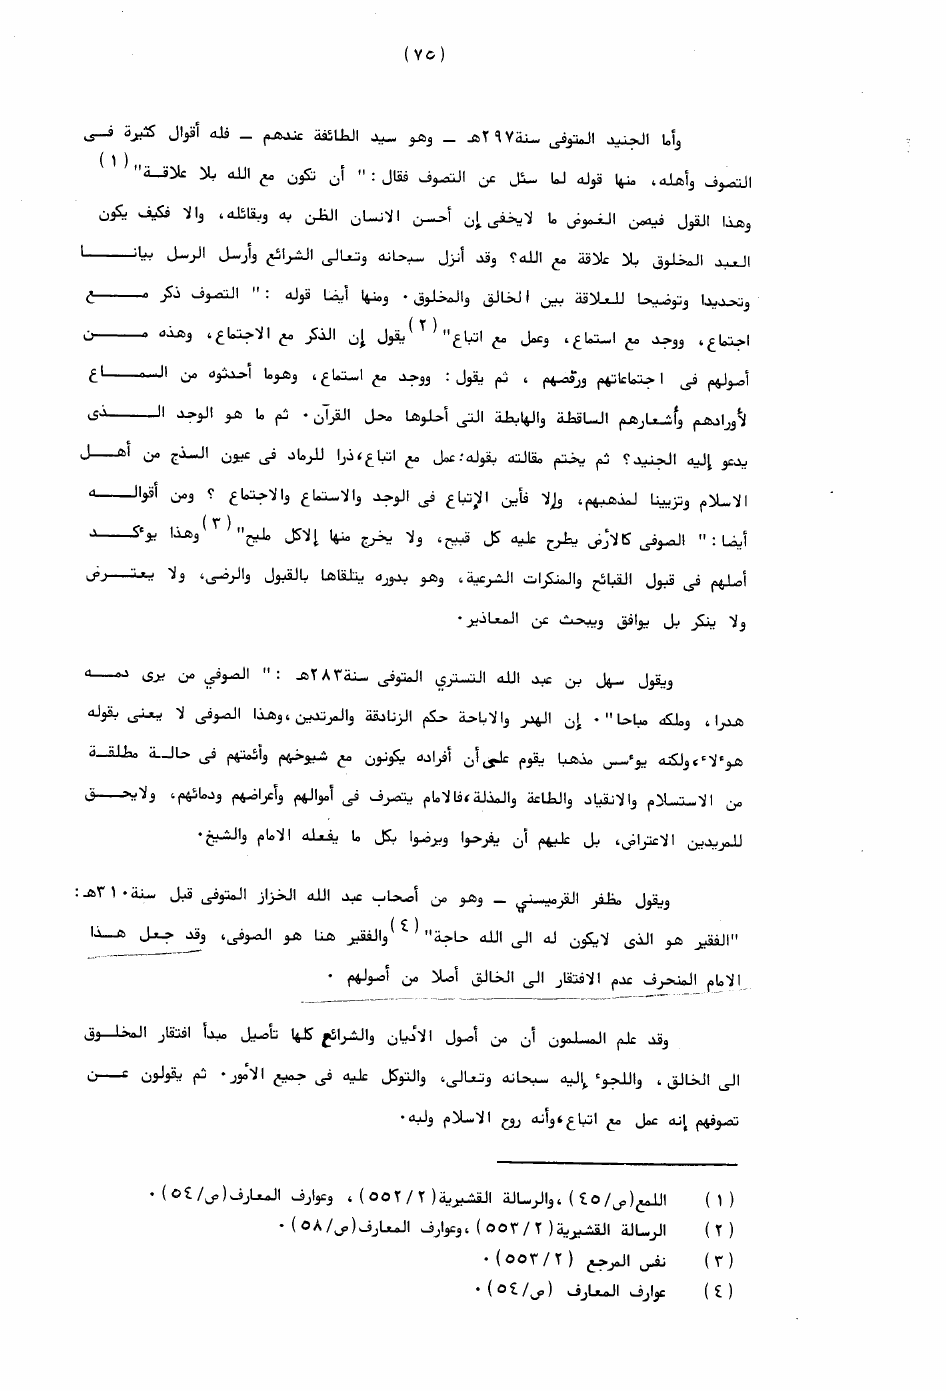 (٧٥)
وأما الجنيد المتوفى سنة ٢٩٧هـ ــ وهو سيد الطائفة عندهم ــ فله أقوال كثيرة فـــى
التصوف وأهله، منها قوله لما سئل عن التصوف فقال : " أن تكون مع الله بلا علاقــة"(١)
وهذا القول فيهمن الغموض ما لايخفى إن أحسن الانسان الظن به وبقائله، والا فكيف يكون
العبد المخلوق بلا علاقة مع الله؟ وقد أنزل سبحانه وتعالى الشرائع وأرسل الرسل بيانــــا
وتحديدا وتوضيحا للعلاقة بين الخالق والمخلوق ٠ ومنها أيضا قوله : " التصوف ذكر مـــــع
اجتماع، ووجد مع استماع، وعمل مع اتباع"(٢)يقول إن الذكر مع الاجتماع، وهذه مـــــن
أصولهم فى اجتماعاتهم ورقصهم ، ثم يقول : ووجد مع استماع، وهوما أحدثوه من السمـــاع
لأورادهم وأشعارهم الساقطة والهابطة التى أحلوها محل القرآن ٠ ثم ما هو الوجد الــــذى
يدعو إليه الجنيد؟ ثم يختم مقالته بقوله:عمل مع اتباع،ذرا للرماد فى عيون السذج من أهـــل
الاسلام وتزيينا لمذهبهم، وإلا فأين الإتباع فى الوجد والاستماع والاجتماع ؟ ومن أقوالــــه
أيضا : " الصوفى كالأرض يطرح عليه كل قبيح، ولا يخرج منها إلاكل مليح"(٣)وهذا يوٴكــــد
أصلهم فى قبول القبائح والمنكرات الشرعية، وهو بدوره يتلقاها بالقبول والرضى، ولا يعتـــرض
ولا ينكر بل يوافق ويبحث عن المعاذير٠
ويقول سهل بن عبد الله التستري المتوفى سنة٢٨٣هـ : " الصوفي من يرى دمـــه
هدرا، وملكه مباحا" ٠ إن الهدر والاباحة حكم الزنادقة والمرتدين،وهذا الصوفى لا يعنى بقوله
هوٴلاء،ولكنه يوٴسس مذهبا يقوم على أن أفراده يكونون مع شيوخهم وأئمتهم فى حالــة مطلقــة
من الاستسلام والانقياد والطاعة والمذلة،فالامام يتصرف فى أموالهم وأعراضهم ودمائهم، ولايحـــق
للمريدين الاعتراض، بل عليهم أن يفرحوا ويرضوا بكل ما يفعله الامام والشيخ٠
ويقول مظفر القرميسني ــ وهو من أصحاب عبد الله الخزاز المتوفى قبل سنة٣١٠هـ :
"الفقير هو الذى لايكون له الى الله حاجة"(٤)والفقير هنا هو الصوفى، وقد جعل هـــذا
الامام المنحرف عدم الافتقار الى الخالق أصلا من أصولهم ٠
وقد علم المسلمون أن من أصول الأديان والشرائع كلها تأصيل مبدأ افتقار المخلــوق
الى الخالق ، واللجوء إليه سبحانه وتعالى، والتوكل عليه فى جميع الأمور٠ ثم يقولون عـــن
تصوفهم إنه عمل مع اتباع،وأنه روح الاسلام ولبه٠
(١) اللمع(ص/٤٥)،والرسالة القشيرية(٥٥٢/٢)، وعوارف المعارف(ص/٥٤)٠
(٢) الرسالة القشيرية(٥٥٣/٢)،وعوارف المعارف(ص/٥٨)٠
(٣) نفس المرجع (٥٥٣/٢)٠
(٤) عوارف المعارف (ص/٥٤)٠